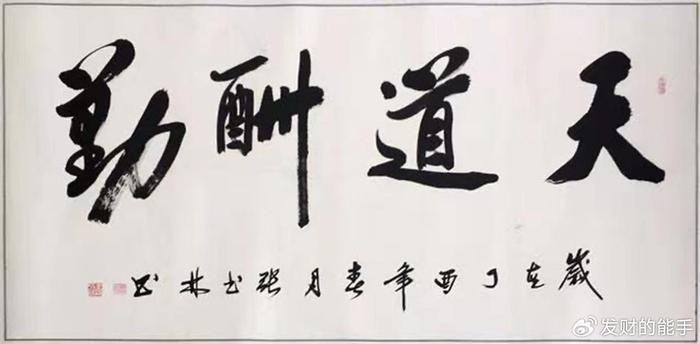 天道酬勤
歲在丁酉年春月张林书
发财的能手